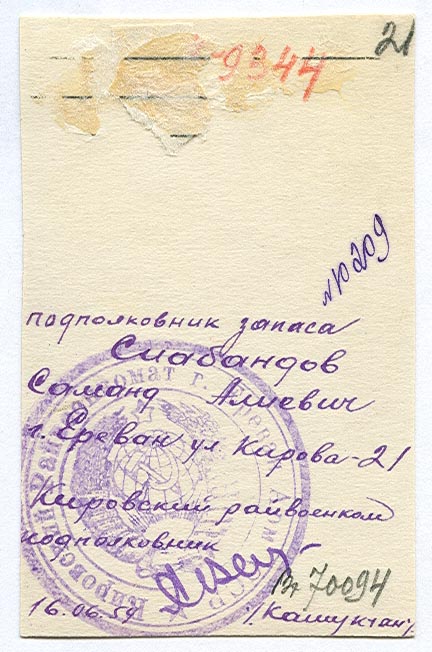 21
-9344
№ 10209
подполковник запаса
Сиабандов
Саманд Алиевич
г. Ереван ул. Кирова-21
Кировский райвоенком
подполковник
70094
16.06.59 /Кашукчян/